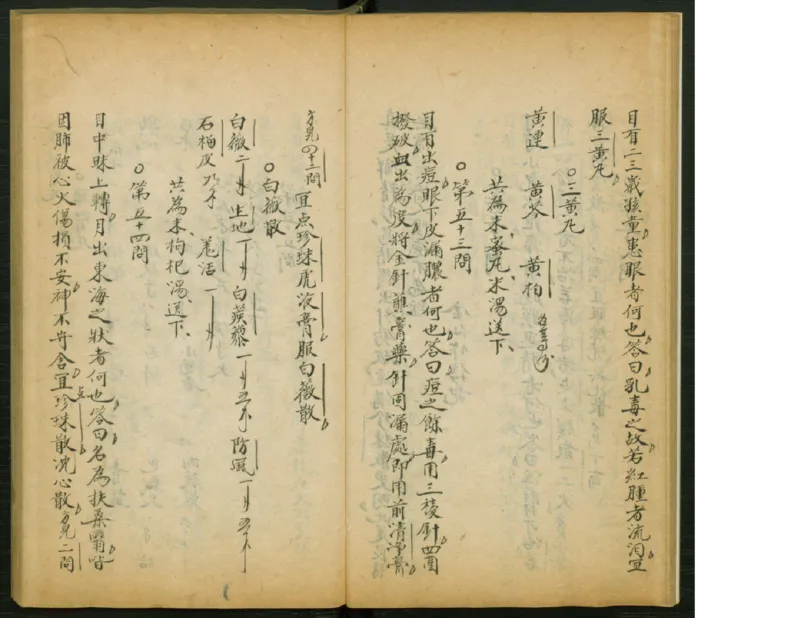 目有二三歳孩童患眼者何也答曰乳毒之故若紅腫者流泪宜
服三黄丸
○三黄丸
黄連 黄芩 黄柏 各等分
共為末蜜丸米湯送下
○第五十三問
目有出痘眼下皮漏膿者何也答曰痘之餘毒用三稜針四圍
撥破血出為度將金針蘸膏藥針同漏處即用前清浄膏
方見四十二問 宜点珍珠虎液膏服白薇散
○白薇散
白薇二 生地一 白蒺藜一 防風一
石柏皮 羗活一
共為末枸杞湯送下
○第五十四問
目中昧上轉月出東海之狀者何也答曰名為扶桑覇皆
因肺被心火傷損不安神不守舍宜点珍珠散洗心散 方見二問